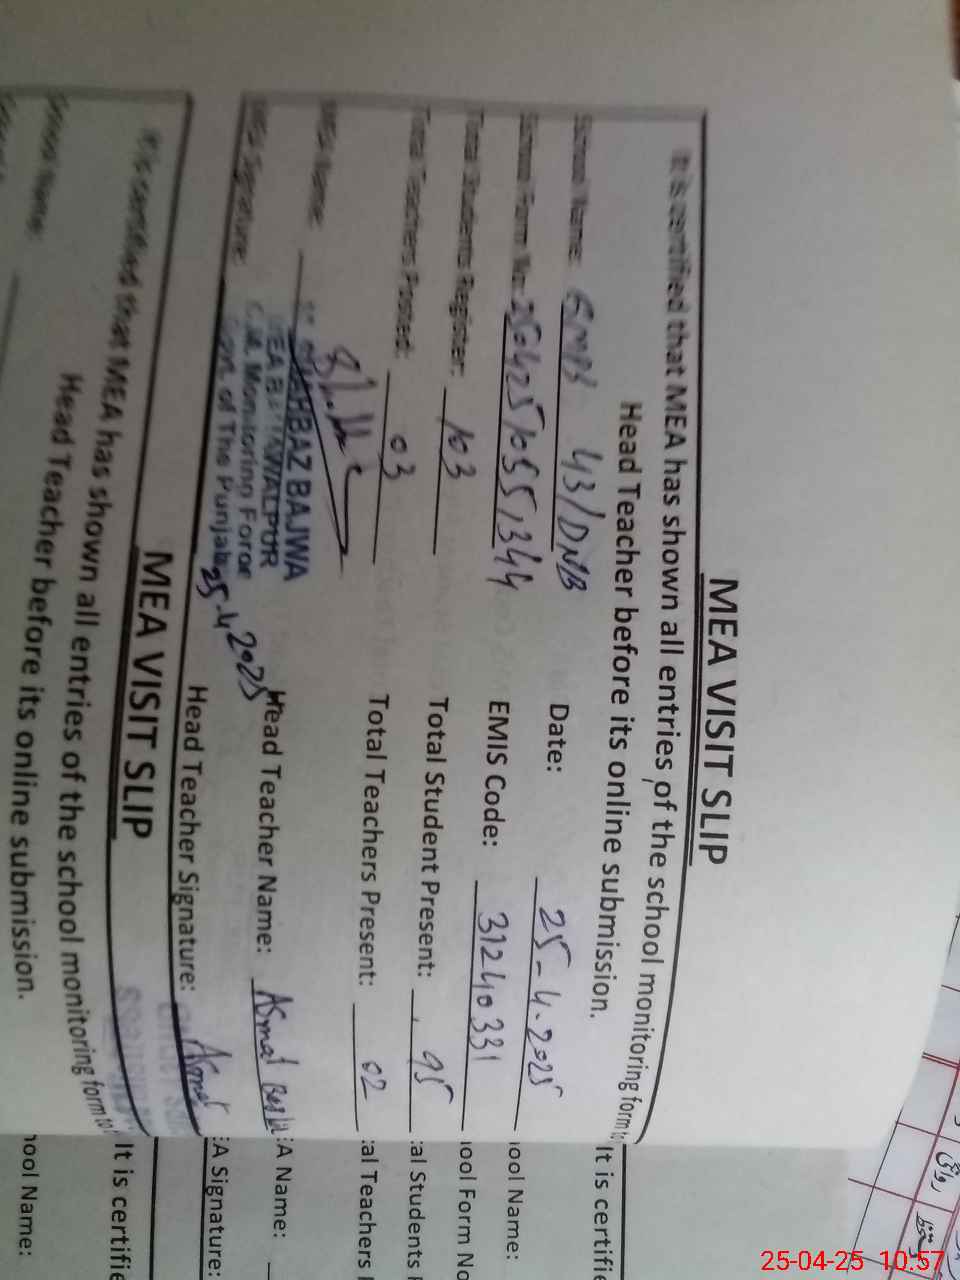 MEA VISIT SLIP
It is certified that MEA has shown all entries of the school monitoring form to
Head Teacher before its online submission.
School Name: GMPS 43/DNB Date: 25-4-2025
School Form No: EMIS Code: 31240331
Total Students Register: 103 Total Student Present: 95
Total Teachers Posted: 03 Total Teachers Present: 02
MEA Name: Head Teacher Name: Asmat
SHAHBAZ BAJWA
MEA BAHAWALPUR
C.M. Monitoring Force
Govt. of The Punjab
25-4-2025
MEA Signature: Head Teacher Signature: Asmat
MEA VISIT SLIP
It is certified that MEA has shown all entries of the school monitoring form to
Head Teacher before its online submission.
School Name:
It is certifie
ool Name:
ool Form No
al Students
al Teachers
A Name:
A Signature:
It is certifie
ool Name:
25-04-25 10:57